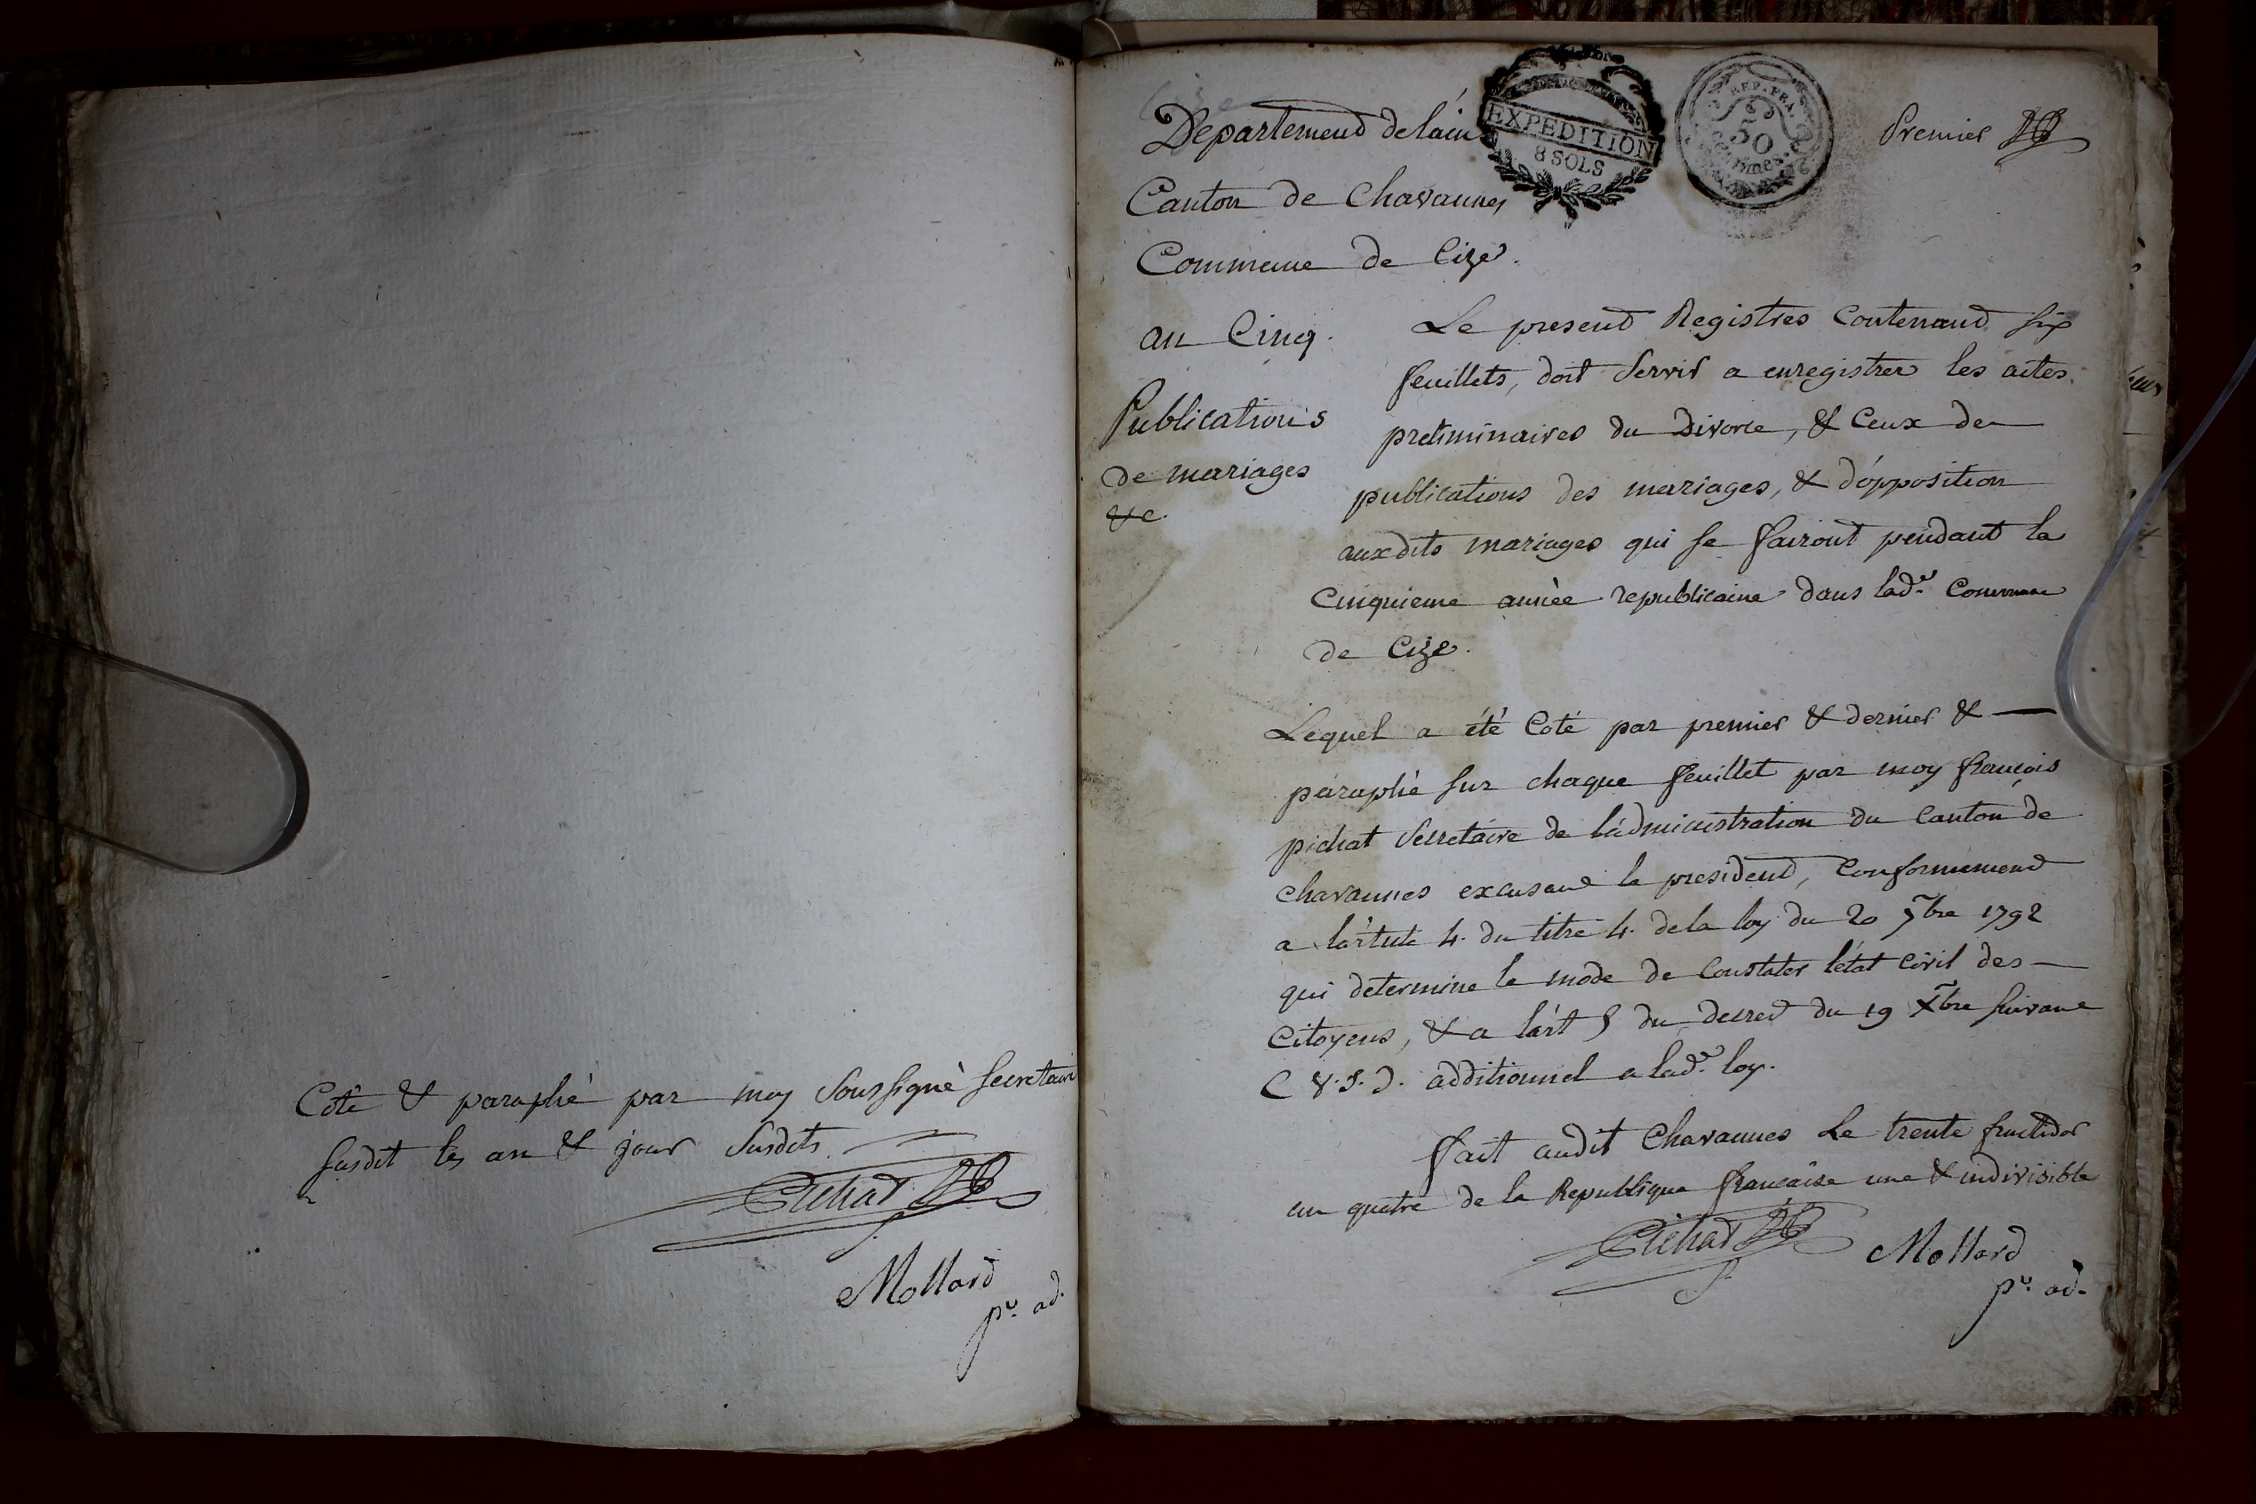 Coté & paraphé par moy Soussigné Secretaire
susdit les an & jour susdits.
Pichat
Mollard
pt. ad.
Departement de lain
EXPEDITION
8 SOLS
REP. FRA.
50
centimes
Premier
Canton de Chavannes
Commune de Cize.
an Cinq.
Publications
de mariages
&c.
Le present Registres Contenand six
feuillets, doit Servir a enregistrer les actes
preliminaires du Divorce, & Ceux de
publications des mariages, & d'opposition
auxdits mariages qui se fairont pendant la
Cinquieme année republicaine dans lade. Commune
de Cize.
Lequel a été Coté par premier & dernier &
paraphé sur chaque feuillet par moy françois
pichat Secretaire de l'administration du Canton de
chavannes excusant le president, Conformement
a l'artcle 4. du titre 4. de la loy du 20 7bre 1792
qui determine le mode de Constater l'état Civil des
Citoyens, & a l'art 5 du decret du 19 Xbre suivant
C V. S. D. additionnel a lade. loy.
fait audit Chavannes Le trente fructidor
an quatre de la Republique francaise une & indivisible
Pichat
Mollard
pt. ad.